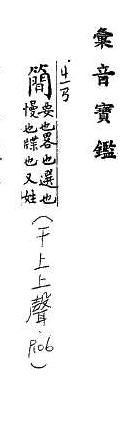 彙音寶鑑
簡
要也畧也選也
慢也牒也又姓
(干上上聲. P106)